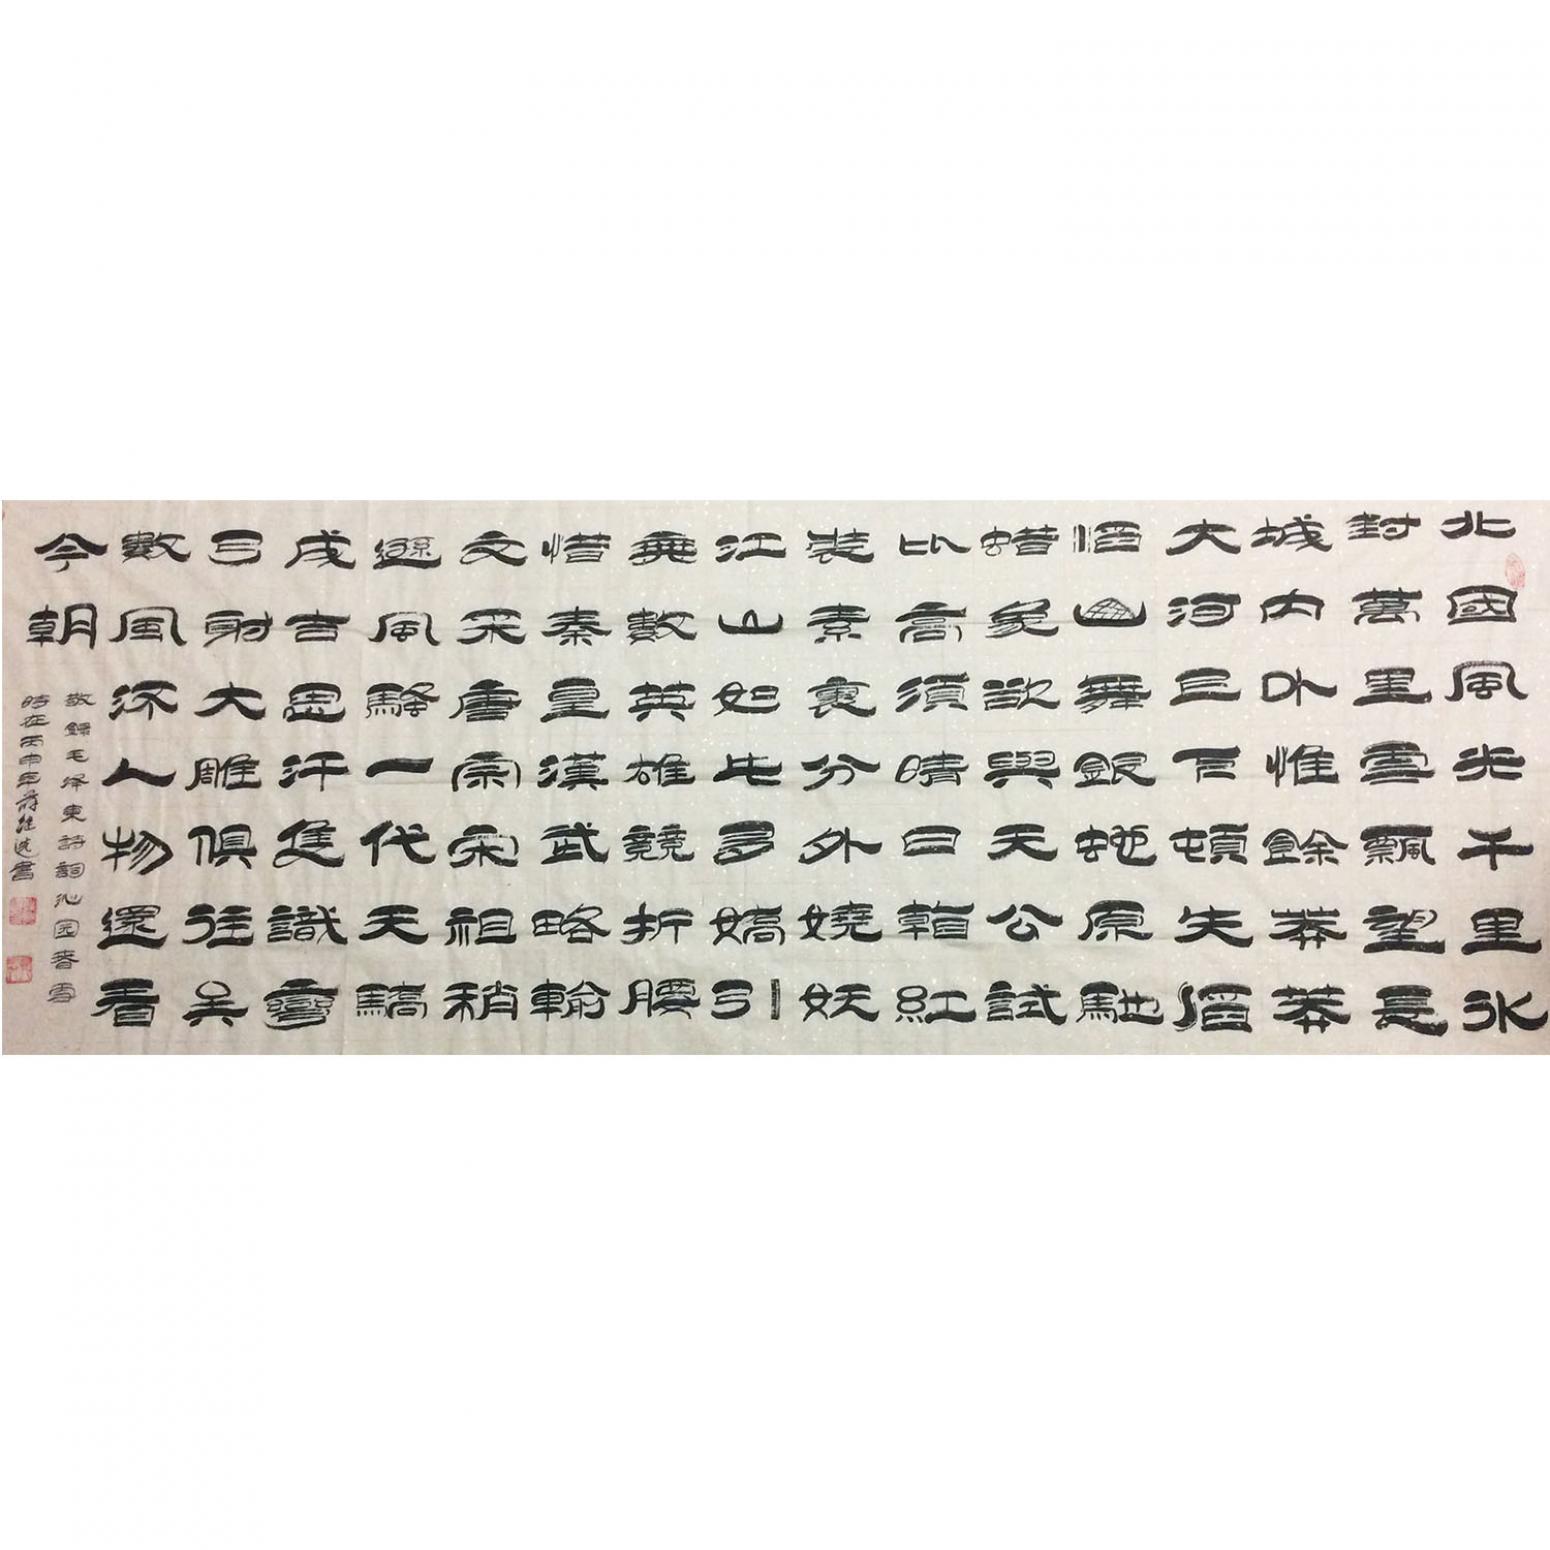 北國風光千里冰
封萬里雪飄望長
城内外惟餘莽莽
大河上下頓失滔
滔山舞銀蛇原馳
蜡象欲與天公試
比高須晴日看紅
裝素裹分外嬈妖
江山如此多嬌引
無數英雄競折腰
惜秦皇漢武略輸
文采唐宗宋祖稍
遜風騷一代天驕
成吉思汗隻識彎
弓射大雕俱往矣
數風流人物還看
今朝
敬錄毛泽東詩詞沁園春雪
時在丙申年書